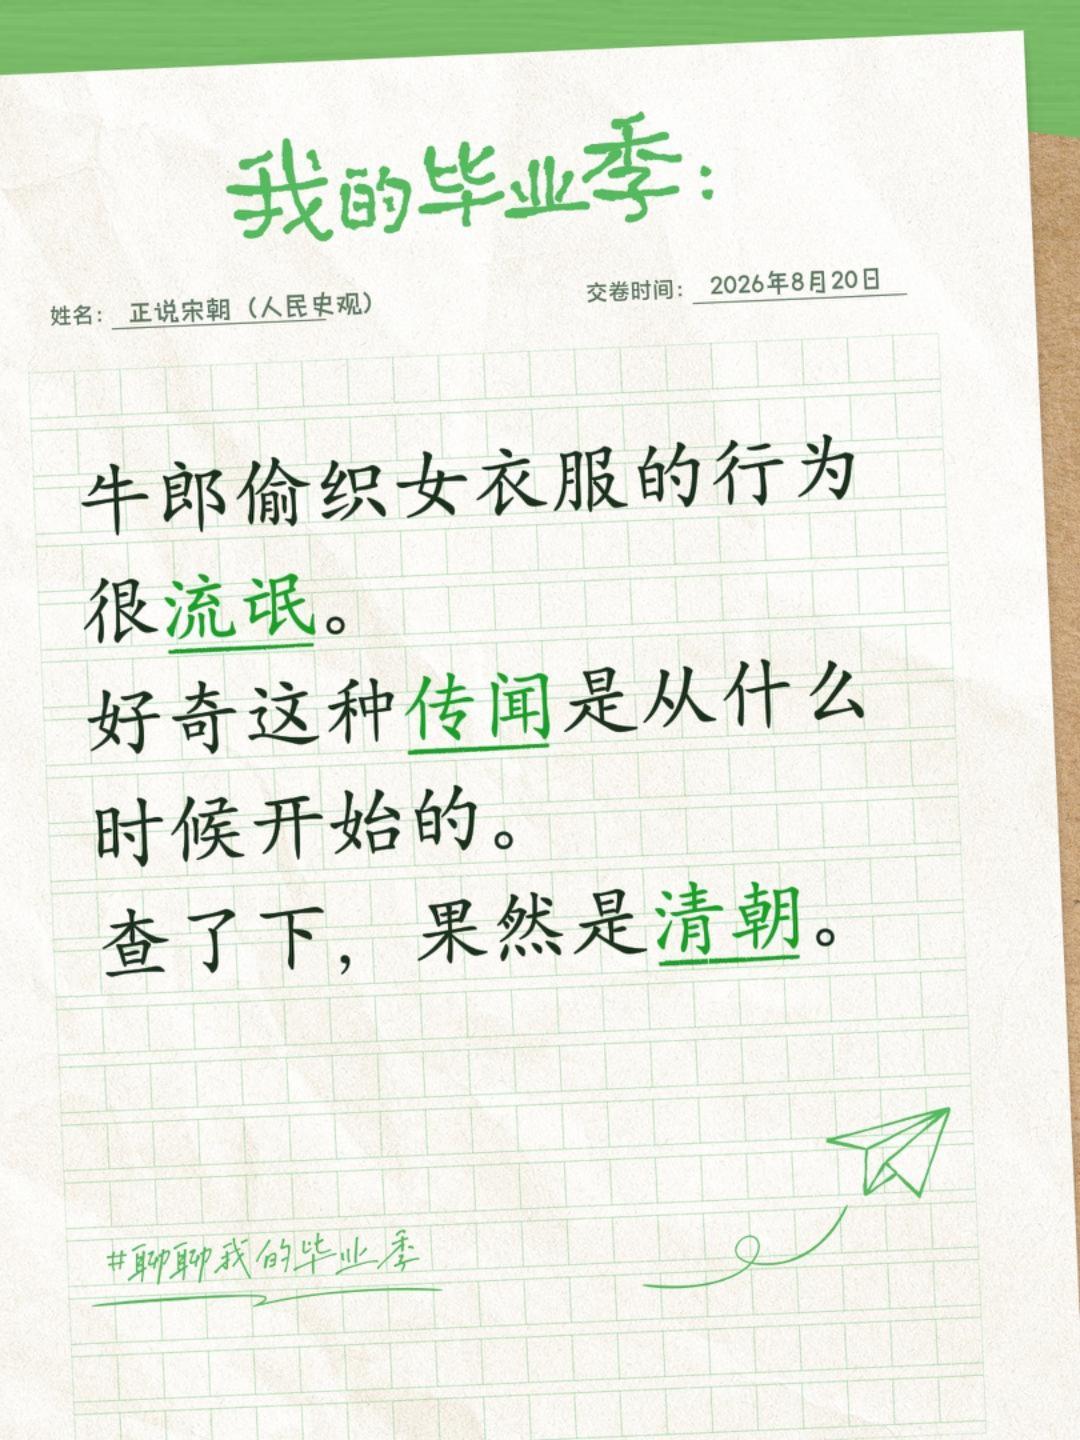 我的毕业季：
姓名： 正说宋朝（人民史观）
交卷时间： 2026年8月20日
牛郎偷织女衣服的行为
很流氓。
好奇这种传闻是从什么
时候开始的。
查了下，果然是清朝。
#聊聊我的毕业季